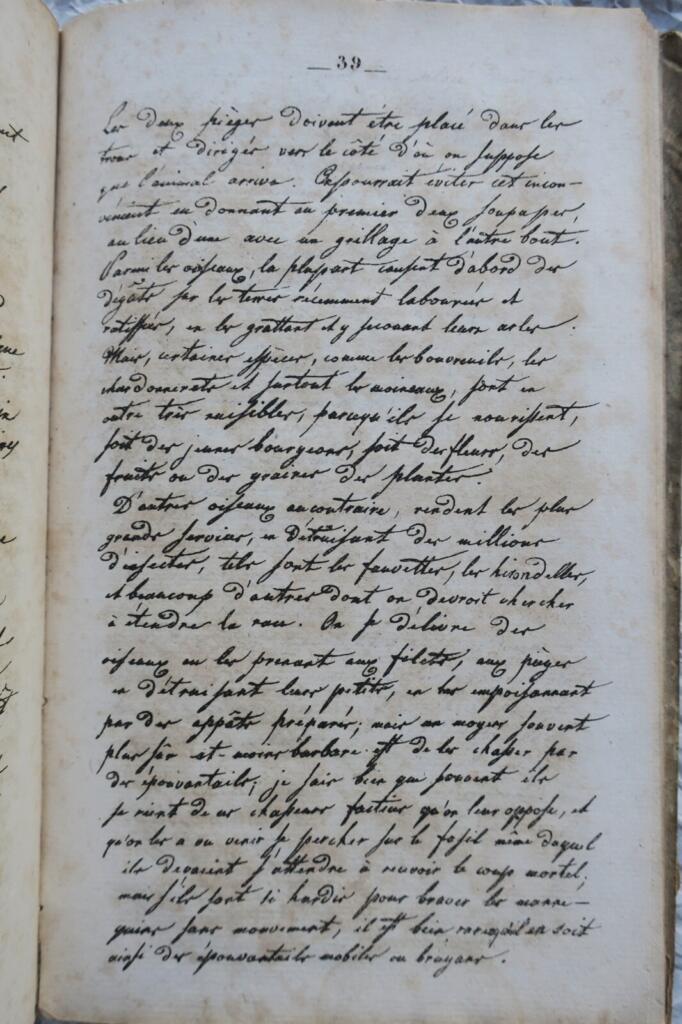 — 39 —
Les deux pièges doivent être placé dans les
trous et dirigés vers le côté d'où on suppose
que l'animal arrive. On pourrait éviter cet incon-
vénient en donnant au premier deux soupapes,
au lieu d'une avec un grillage à l'autre bout.
Parmi les oiseaux, la pluspart causent d'abord des
dégâts sur les terres récemment labourées et
ratissées, en les grattant et y secouant leurs ailes.
Mais, certaines espèces, comme les bouvreuils, les
chardonnerets et surtout les moineaux, sont en
outre très nuisibles, parcequ'ils se nourissent,
soit des jeunes bourgeons, soit des fleurs, des
fruits ou des graines des plantes.
D'autres oiseaux au contraire, rendent les plus
grands services, en détruisant des millions
d'insectes, tels sont les fauvettes, les hirondelles,
et beaucoup d'autres dont on devroit chercher
à étendre la race. On se délivre des
oiseaux en les prenant aux filets, aux pièges
en détruisant leurs petits, en les empoisonnant
par des appâts préparés; mais un moyen souvent
plus sûr et moins barbare est de les chasser par
des épouvantails; je sais bien que souvent ils
se rient de ces chasseurs factices qu'on leur oppose, et
qu'on les a vu venir se percher sur le fusil même duquel
ils devaient s'attendre à recevoir le coup mortel;
mais s'ils sont si hardis pour braver les manne-
quins sans mouvement, il est bien rare qu'il en soit
ainsi des épouvantails mobiles ou bruyans.